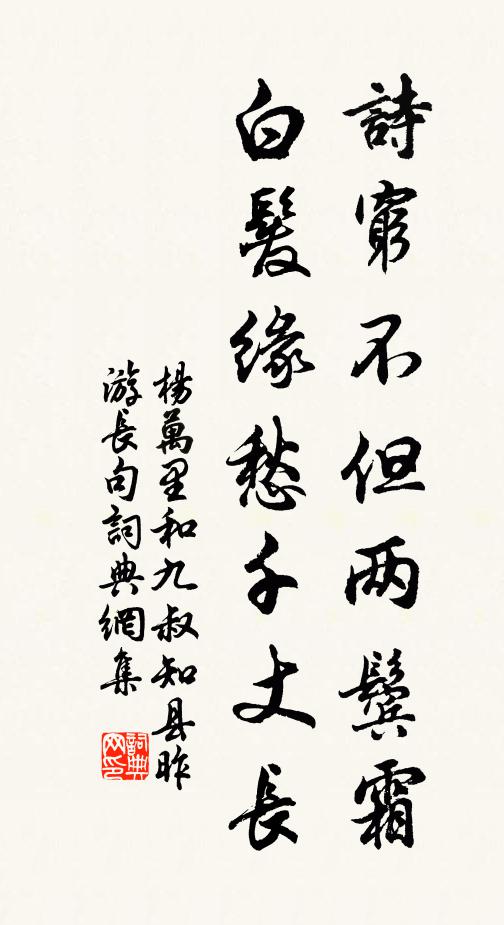 詩窮不但两鬢霜
白髮緣愁千丈長
楊萬里和九叔知县昨
游長句詞典網集
詞典
网印